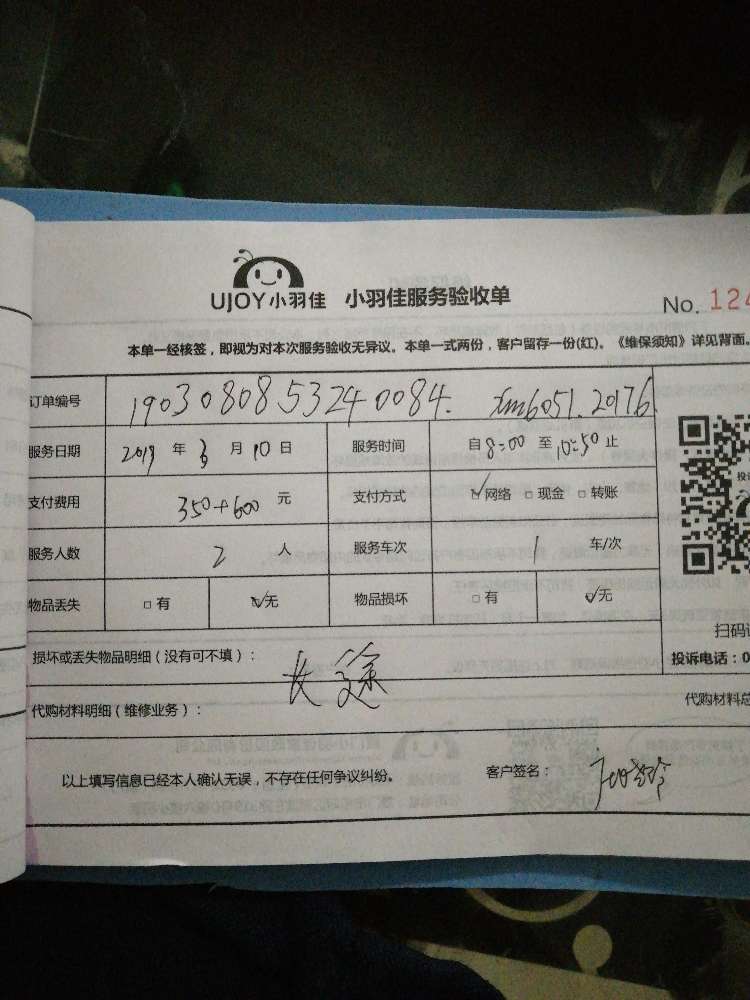 UJOY小羽佳 小羽佳服务验收单
No. 124
本单一经核签，即视为对本次服务验收无异议。本单一式两份，客户留存一份(红)。《维保须知》详见背面。
订单编号 1903080853240084. xm6051.20176
服务日期 2019 年 3 月 10 日 服务时间 自 8:00 至 10:50 止
支付费用 350+600 元 支付方式 ☑网络 □现金 □转账
服务人数 2 人 服务车次 1 车/次
物品丢失 □有 ☑无 物品损坏 □有 ☑无
扫码
损坏或丢失物品明细（没有可不填）： 长途
投诉电话：0
代购材料明细（维修业务）：
代购材料总
以上填写信息已经本人确认无误，不存在任何争议纠纷。 客户签名：